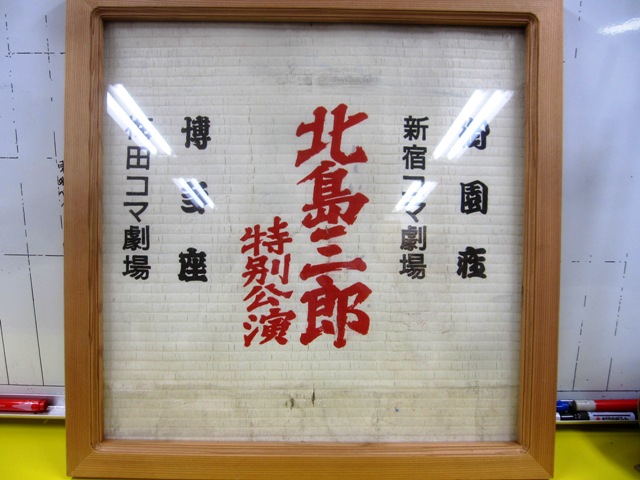 御園座
新宿コマ劇場
北島三郎
特別公演
博多座
梅田コマ劇場